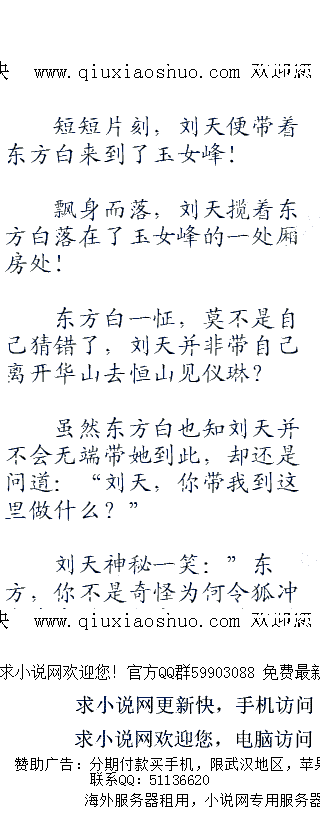 快 www.qiuxiaoshuo.com 欢迎您
短短片刻，刘天便带着
东方白来到了玉女峰！
飘身而落，刘天揽着东
方白落在了玉女峰的一处厢
房处！
东方白一怔，莫不是自
己猜错了，刘天并非带自己
离开华山去恒山见仪琳？
虽然东方白也知刘天并
不会无端带她到此，却还是
问道：“刘天，你带我到这
里做什么？”
刘天神秘一笑：”东
方，你不是奇怪为何令狐冲
快 www.qiuxiaoshuo.com 欢迎您
求小说网欢迎您！官方QQ群59903088 免费最新
求小说网更新快，手机访问
求小说网欢迎您，电脑访问
赞助广告：分期付款买手机，限武汉地区，苹果
联系QQ：51136620
海外服务器租用，小说网专用服务器